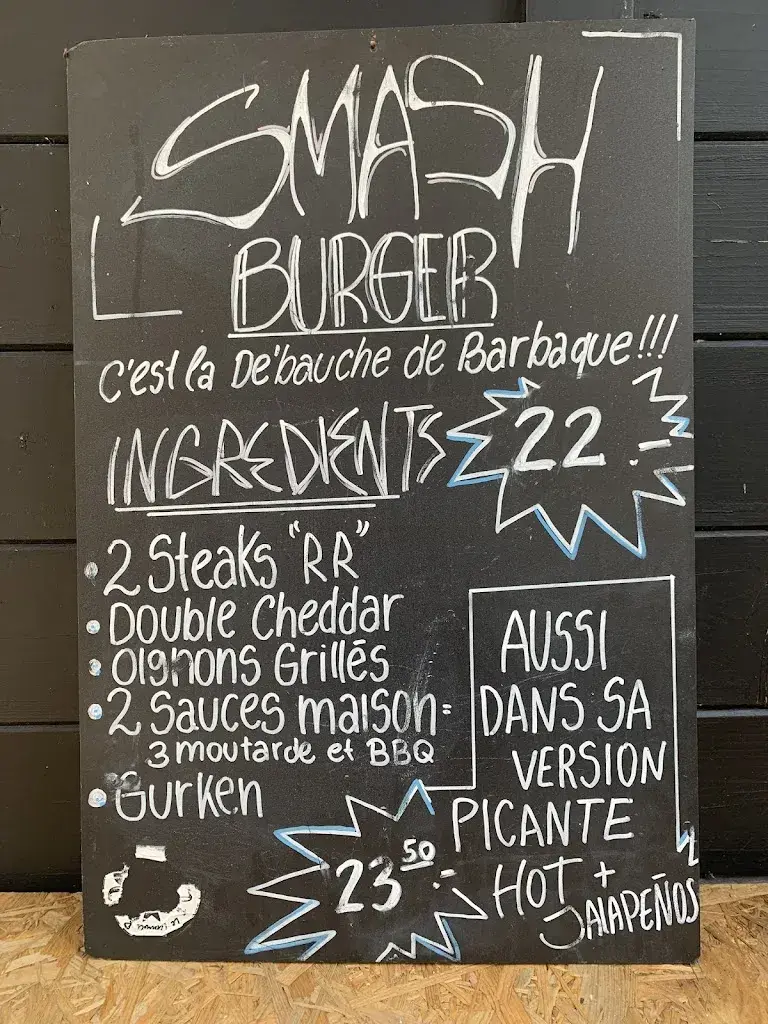 SMASH
BURGER
C'est la Dé'bauche de Barbaque!!!
INGREDIENTS
22.-
2 Steaks "RR"
Double Cheddar
Oignons Grillés
2 Sauces maison:
3 moutarde et BBQ
Gurken
AUSSI
DANS SA
VERSION
PICANTE
HOT +
JALAPEÑOS
23.50.-